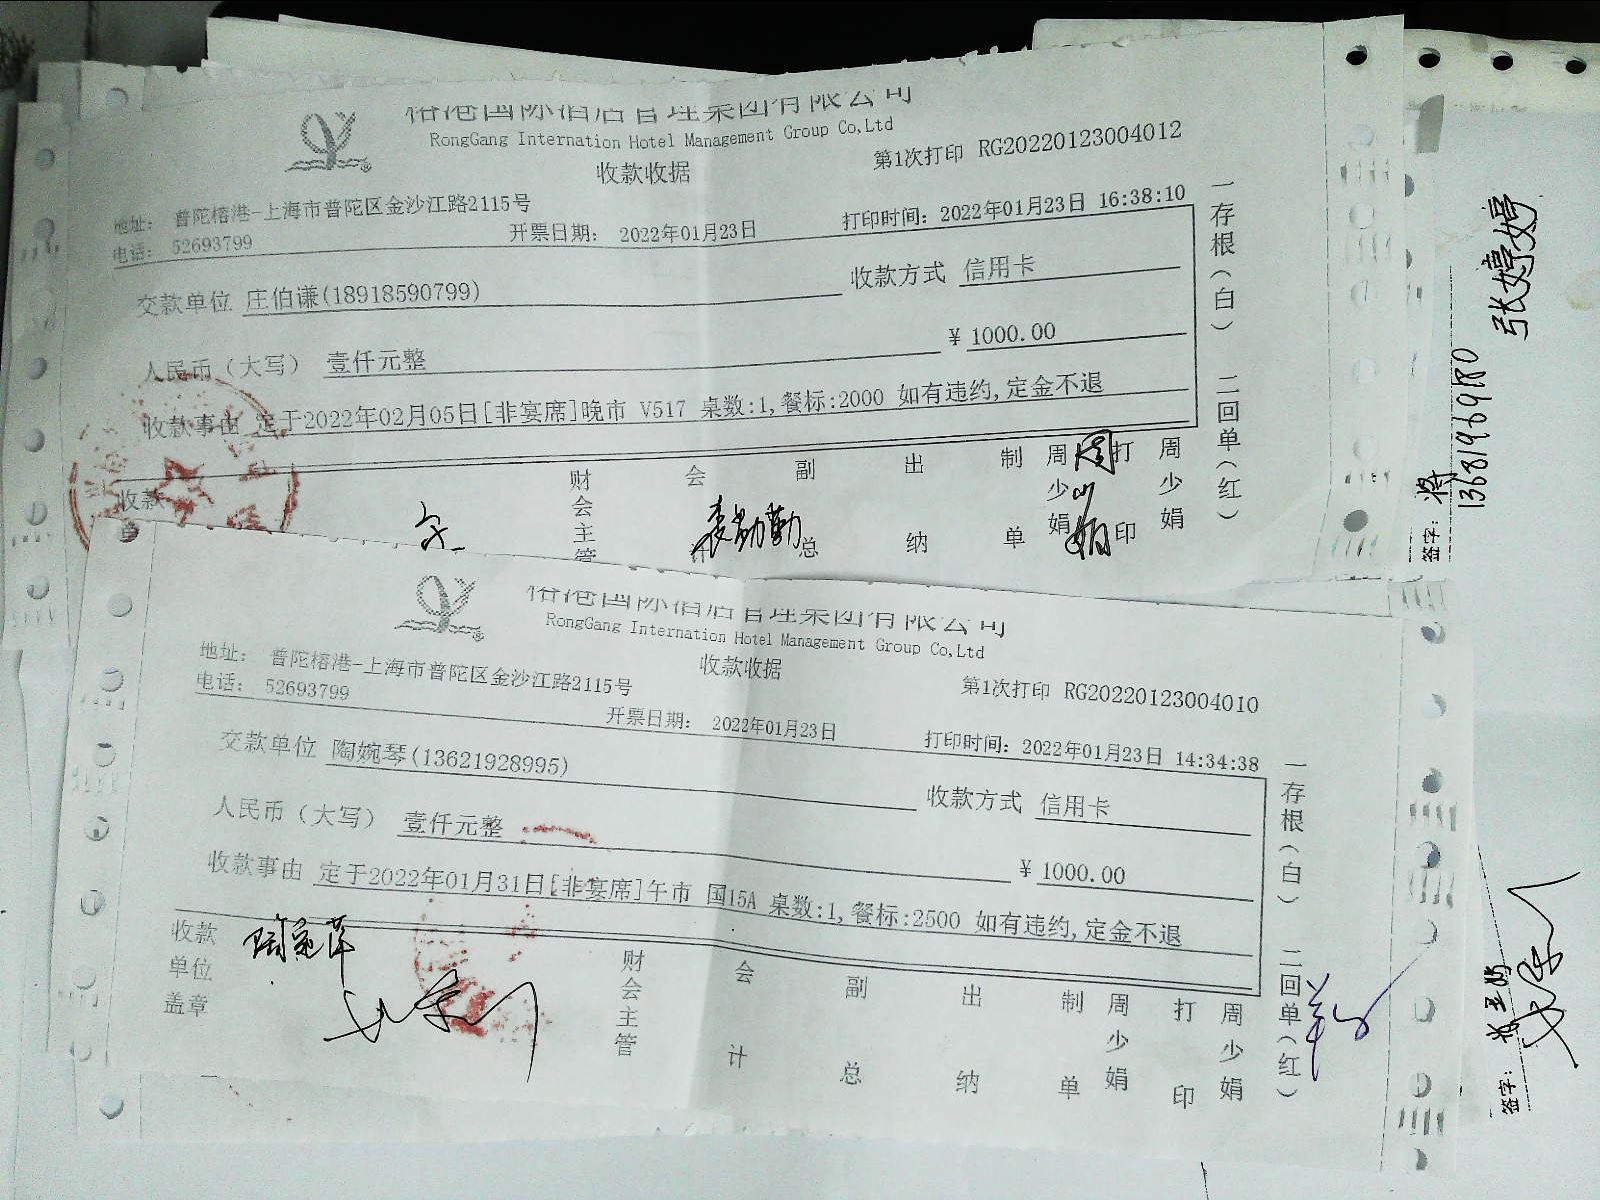 榕港国际酒店管理集团有限公司
RongGang Internation Hotel Management Group Co,Ltd
收款收据
第1次打印 RG20220123004012
地址： 普陀榕港-上海市普陀区金沙江路2115号
电话： 52693799
开票日期： 2022年01月23日
打印时间：2022年01月23日 16:38:10
交款单位 庄伯谦(18918590799)
收款方式 信用卡
人民币（大写） 壹仟元整
￥ 1000.00
收款事由 定于2022年02月05日[非宴席]晚市 V517 桌数:1,餐标:2000 如有违约,定金不退
收款
财会主管
会计
副总
出纳
制单
周少娟
打印
周少娟
一存根（白） 二回单（红）
张婷婷
签字：
13681969180
榕港国际酒店管理集团有限公司
RongGang Internation Hotel Management Group Co,Ltd
收款收据
第1次打印 RG20220123004010
地址： 普陀榕港-上海市普陀区金沙江路2115号
电话： 52693799
开票日期： 2022年01月23日
打印时间：2022年01月23日 14:34:38
交款单位 陶婉琴(13621928995)
收款方式 信用卡
人民币（大写） 壹仟元整
￥ 1000.00
收款事由 定于2022年01月31日[非宴席]午市 国15A 桌数:1,餐标:2500 如有违约,定金不退
收款单位盖章
财会主管
会计
副总
出纳
制单
周少娟
打印
周少娟
一存根（白） 二回单（红）
签字：